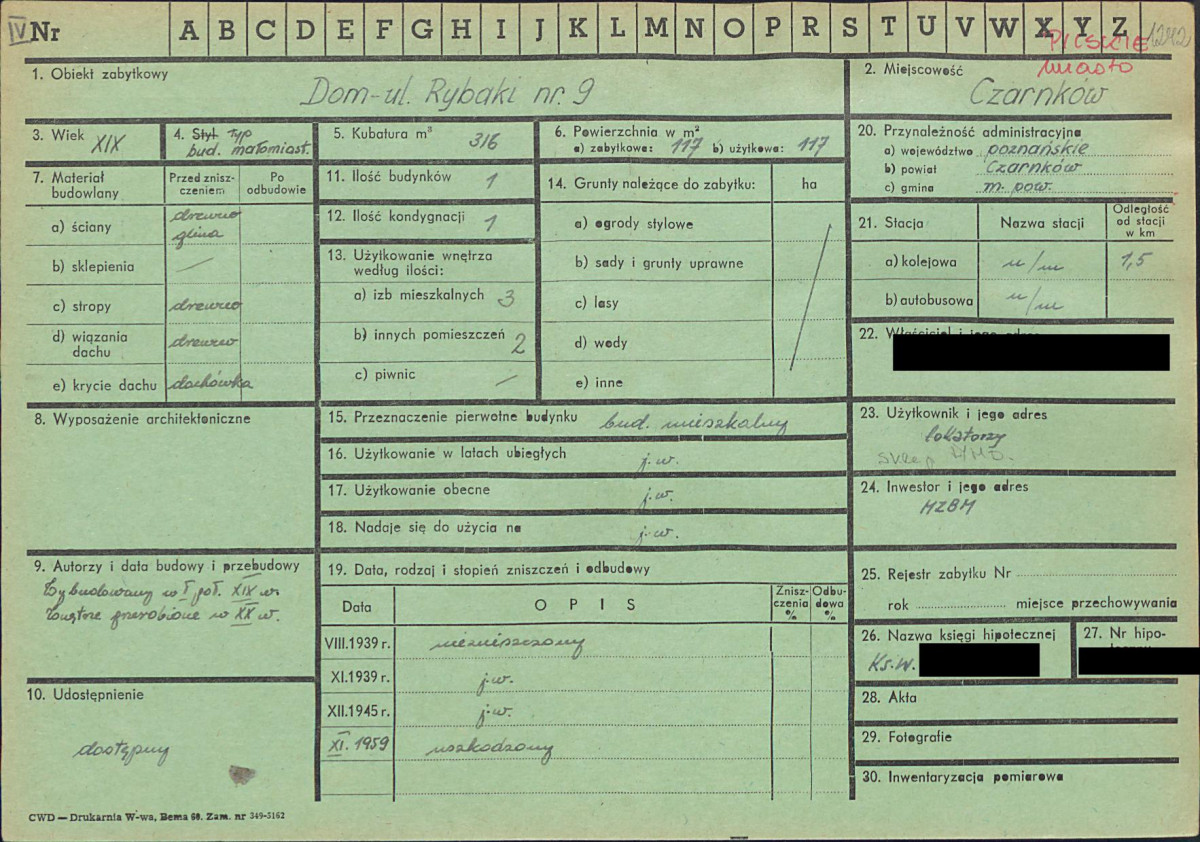 IV Nr A B C D E F G H I J K L M N O P R S T U V W X Y Z 1242
PILSKIE
miasto
1. Obiekt zabytkowy
Dom-ul. Rybaki nr. 9
2. Miejscowość
Czarnków
3. Wiek XIX
4. Styl typ
bud. małomiast.
5. Kubatura m³
316
6. Powierzchnia w m²
a) zabytkowa: 117 b) użytkowa: 117
20. Przynależność administracyjna
a) województwo poznańskie
b) powiat Czarnków
c) gmina m. pow.
7. Materiał budowlany
Przed znisz-
czeniem
Po
odbudowie
a) ściany drewno
glina
b) sklepienia —
c) stropy drewno
d) wiązania
dachu drewno
e) krycie dachu dachówka
11. Ilość budynków 1
12. Ilość kondygnacji 1
13. Użytkowanie wnętrza
według ilości:
a) izb mieszkalnych 3
b) innych pomieszczeń 2
c) piwnic —
14. Grunty należące do zabytku: ha
a) ogrody stylowe
b) sady i grunty uprawne
c) lasy
d) wody
e) inne
21. Stacja
Nazwa stacji
Odległość
od stacji
w km
a) kolejowa n/m 1,5
b) autobusowa n/m
22. Właściciel i jego adres
8. Wyposażenie architektoniczne
15. Przeznaczenie pierwotne budynku bud. mieszkalny
16. Użytkowanie w latach ubiegłych j.w.
17. Użytkowanie obecne j.w.
18. Nadaje się do użycia na j.w.
23. Użytkownik i jego adres
lokatorzy
sklep
24. Inwestor i jego adres
MZBM
9. Autorzy i data budowy i przebudowy
Wybudowany w I poł. XIX w.
przerobione w XX w.
10. Udostępnienie
dostępny
19. Data, rodzaj i stopień zniszczeń i odbudowy
Data
OPIS
Znisz-
czenia
%
Odbu-
dowa
%
VIII.1939 r. niezniszczony
XI.1939 r. j.w.
XII.1945 r. j.w.
XI. 1959 uszkodzony
25. Rejestr zabytku Nr
rok miejsce przechowywania
26. Nazwa księgi hipotecznej
Ks.W.
27. Nr hipo-
28. Akta
29. Fotografie
30. Inwentaryzacja pomiarowa
CWD — Drukarnia W-wa, Bema 60. Zam. nr 349-5162